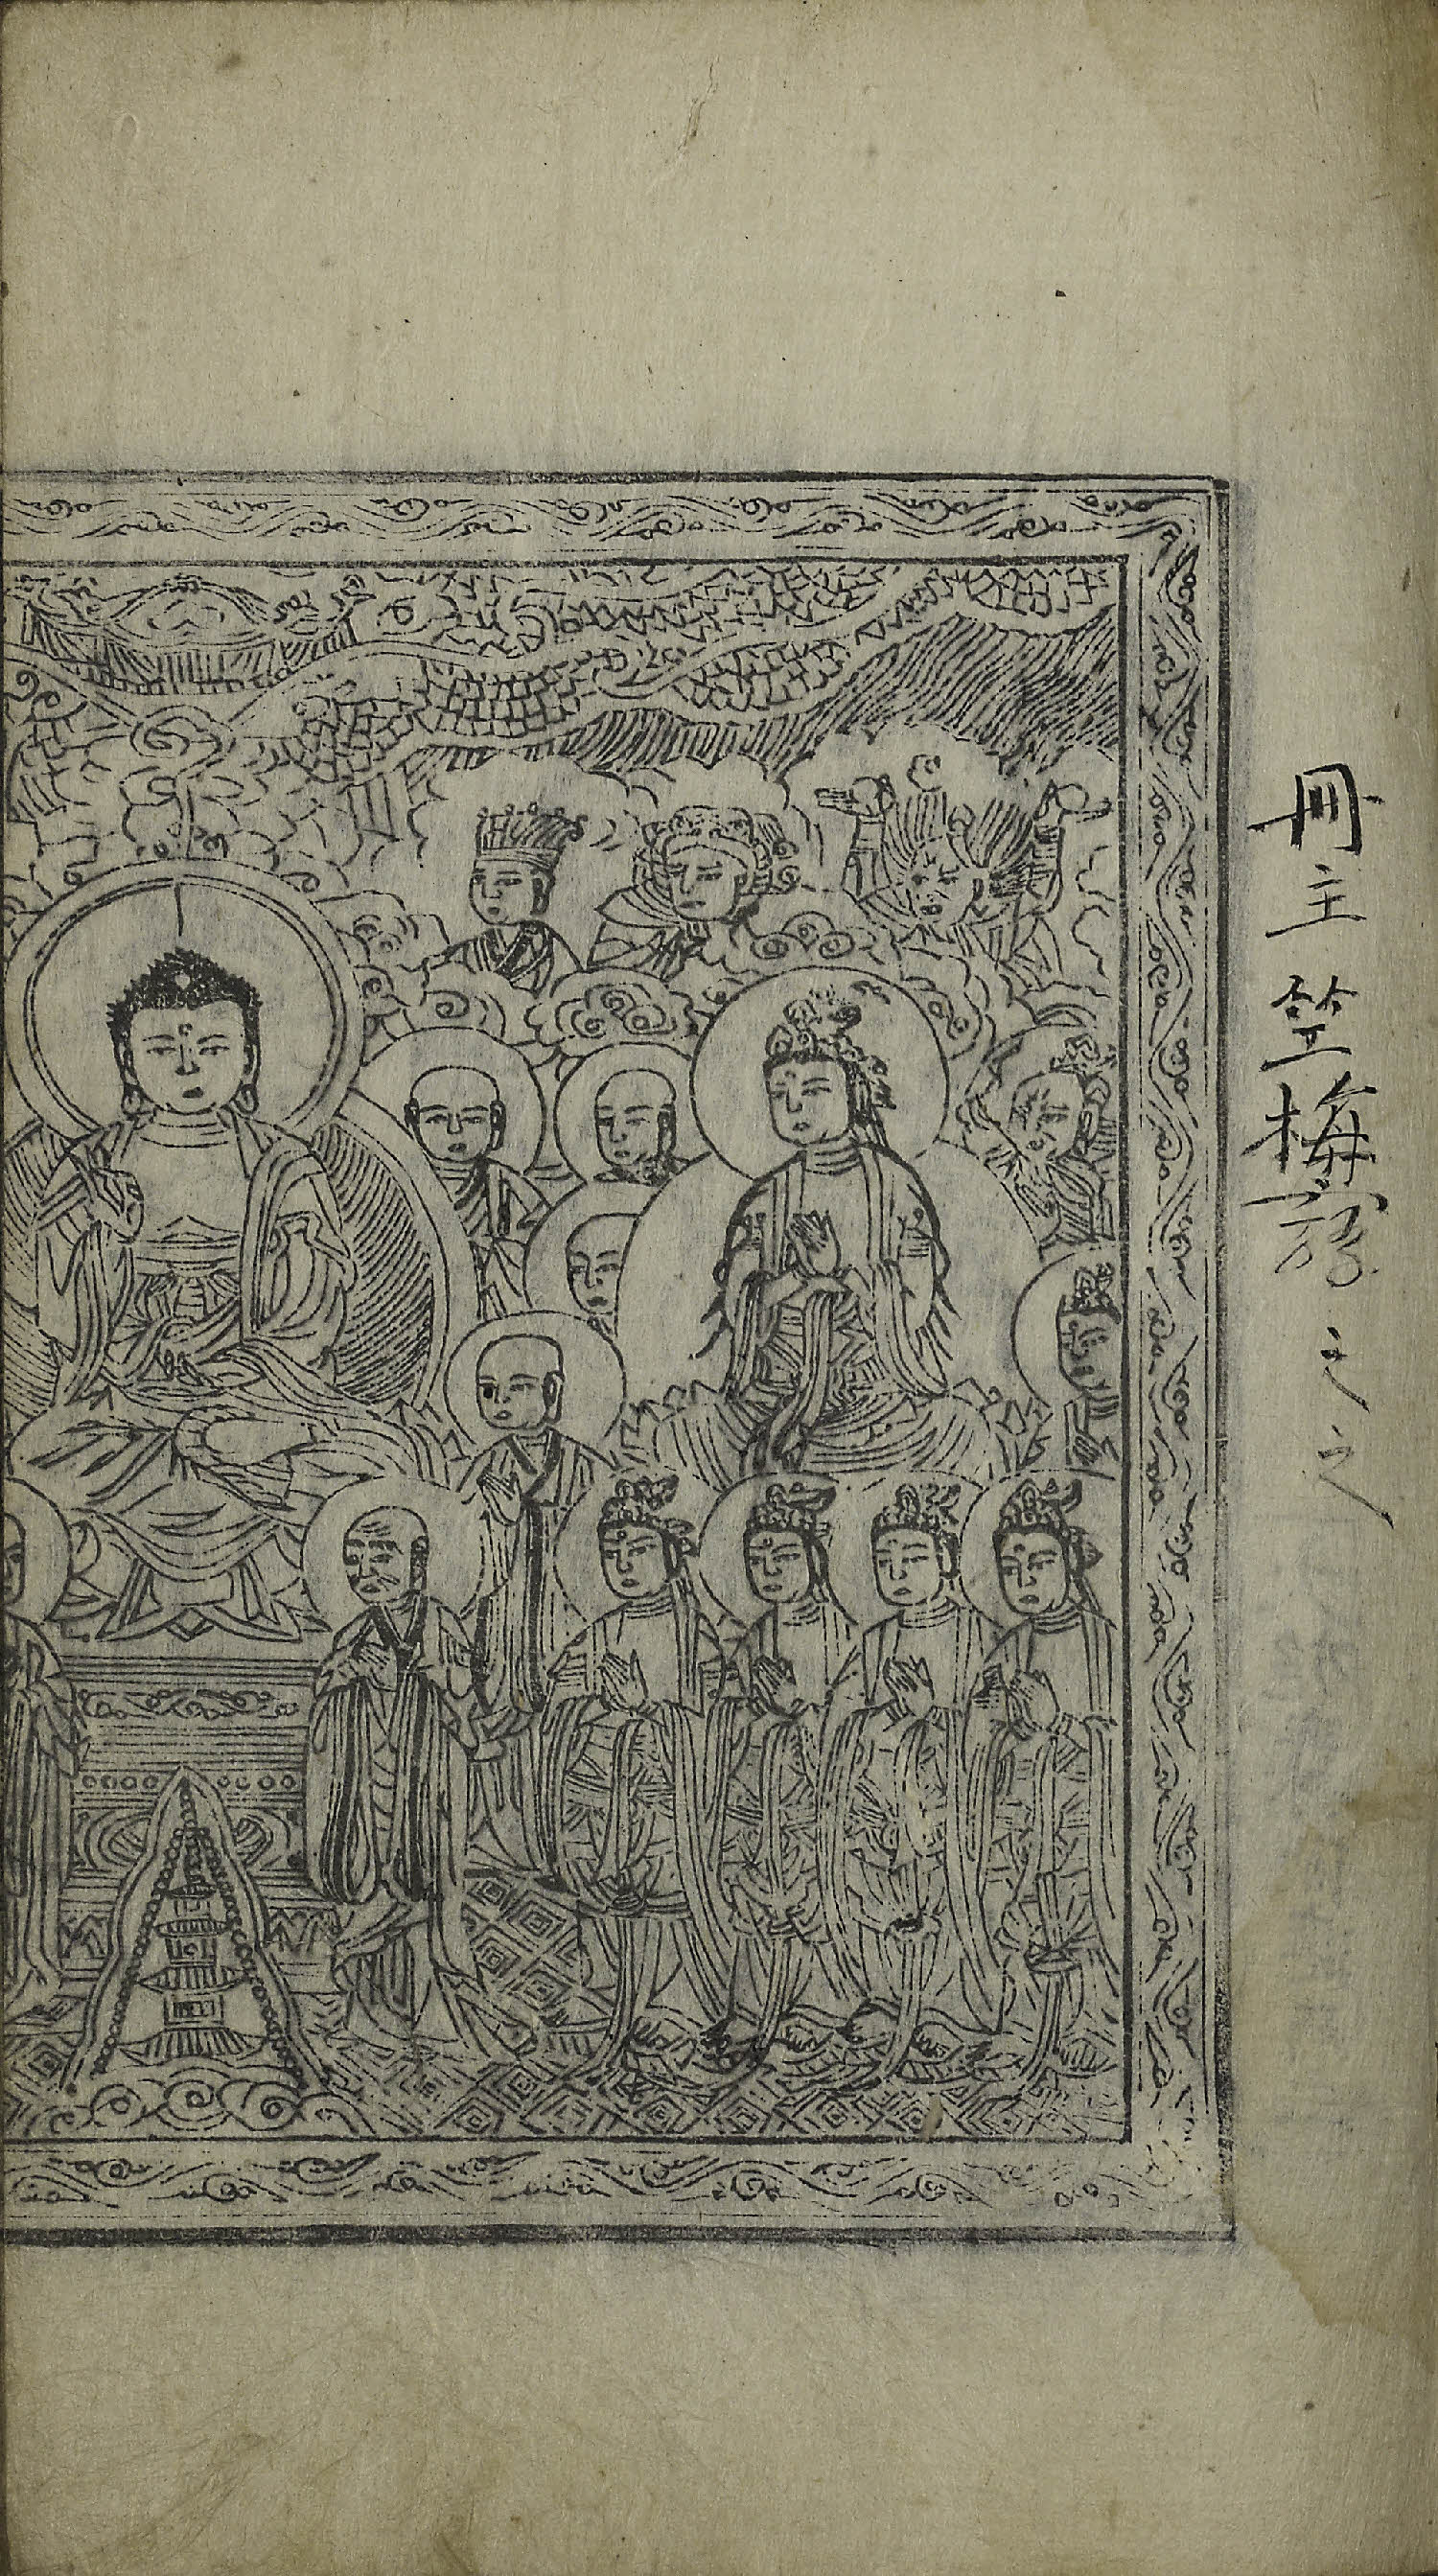 冊主竺梅之之